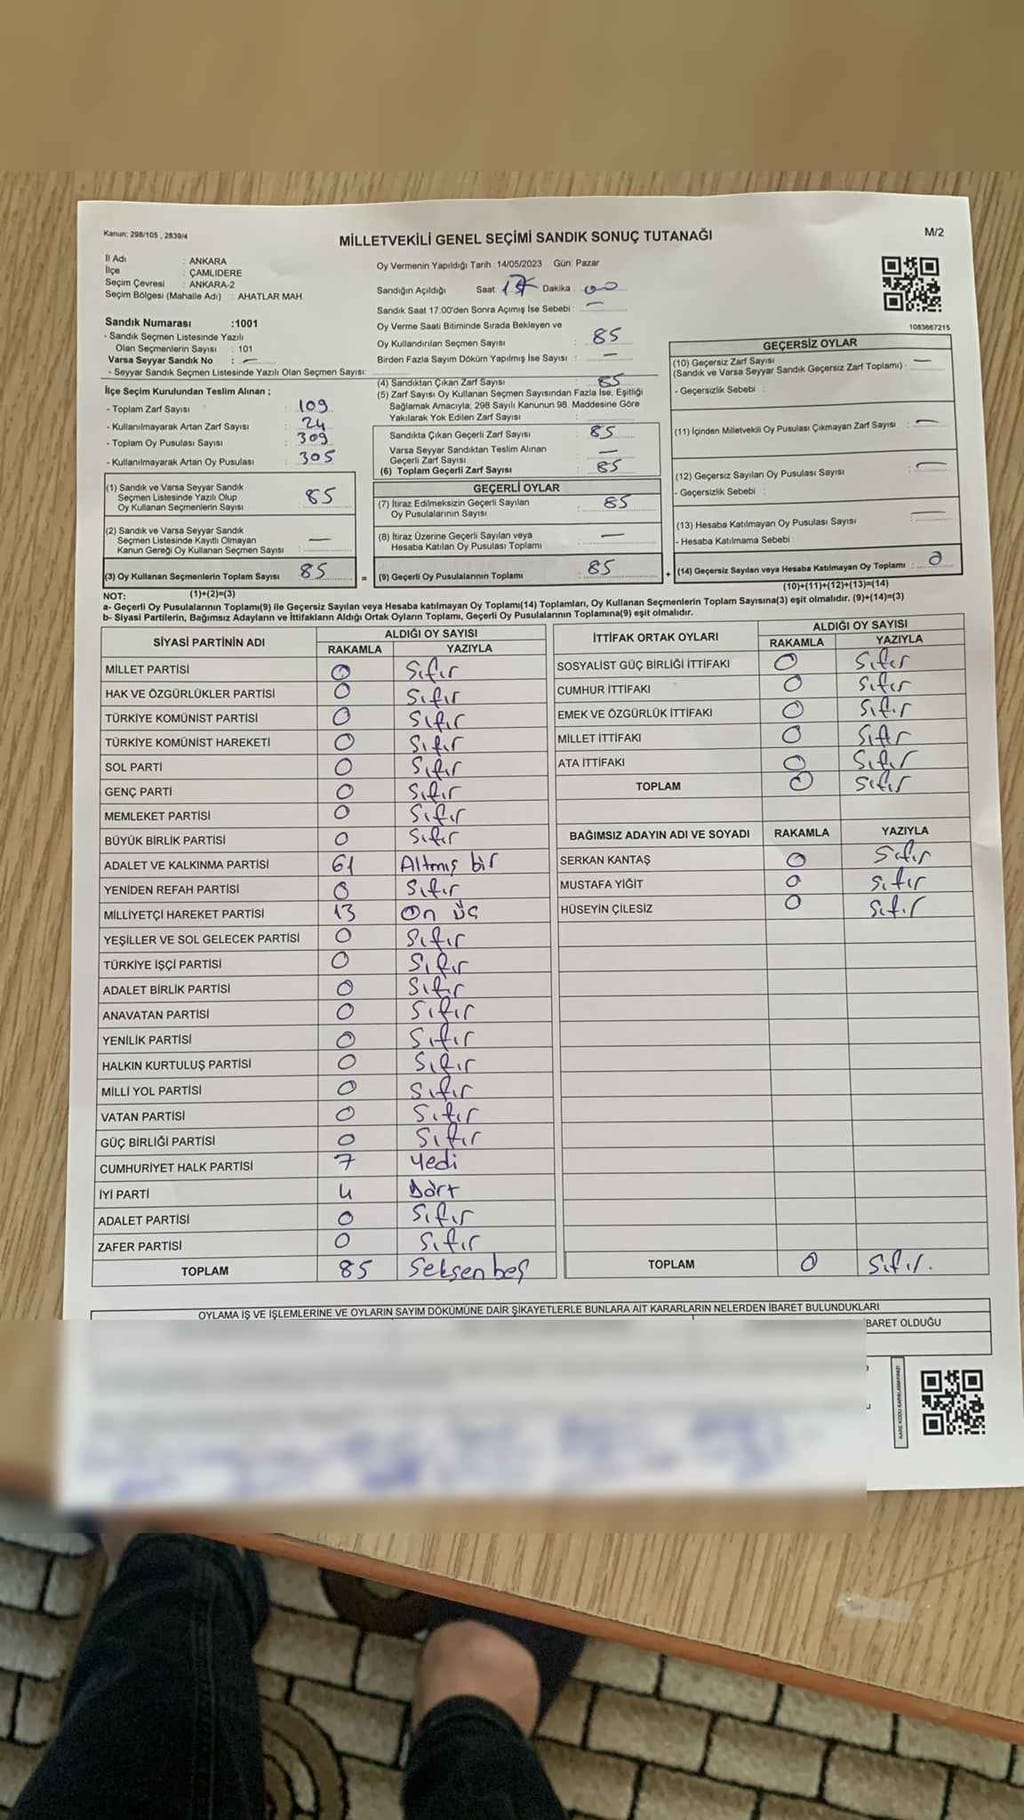 Kanun: 298/105 , 2839/4
MİLLETVEKİLİ GENEL SEÇİMİ SANDIK SONUÇ TUTANAĞI
M/2
İl Adı : ANKARA
İlçe : ÇAMLIDERE
Seçim Çevresi : ANKARA-2
Seçim Bölgesi (Mahalle Adı) : AHATLAR MAH.
Sandık Numarası :1001
- Sandık Seçmen Listesinde Yazılı
Olan Seçmenlerin Sayısı : 101
Varsa Seyyar Sandık No : —
- Seyyar Sandık Seçmen Listesinde Yazılı Olan Seçmen Sayısı:
İlçe Seçim Kurulundan Teslim Alınan ;
- Toplam Zarf Sayısı : 109
- Kullanılmayarak Artan Zarf Sayısı : 24
- Toplam Oy Pusulası Sayısı : 309
- Kullanılmayarak Artan Oy Pusulası : 305
(1) Sandık ve Varsa Seyyar Sandık
Seçmen Listesinde Yazılı Olup
Oy Kullanan Seçmenlerin Sayısı : 85
(2) Sandık ve Varsa Seyyar Sandık
Seçmen Listesinde Kayıtlı Olmayan
Kanun Gereği Oy Kullanan Seçmen Sayısı : —
(3) Oy Kullanan Seçmenlerin Toplam Sayısı : 85
Oy Vermenin Yapıldığı Tarih :14/05/2023 Gün: Pazar
Sandığın Açıldığı Saat Dakika 00
Sandık Saat 17:00'den Sonra Açımış İse Sebebi : —
Oy Verme Saati Bitiminde Sırada Bekleyen ve
Oy Kullandırılan Seçmen Sayısı : 85
Birden Fazla Sayım Döküm Yapılmış İse Sayısı : —
(4) Sandıktan Çıkan Zarf Sayısı : 85
(5) Zarf Sayısı Oy Kullanan Seçmen Sayısından Fazla İse, Eşitliği
Sağlamak Amacıyla, 298 Sayılı Kanunun 98. Maddesine Göre
Yakılarak Yok Edilen Zarf Sayısı :
Sandıkta Çıkan Geçerli Zarf Sayısı : 85
Varsa Seyyar Sandıktan Teslim Alınan
Geçerli Zarf Sayısı : —
(6) Toplam Geçerli Zarf Sayısı : 85
GEÇERLİ OYLAR
(7) İtiraz Edilmeksizin Geçerli Sayılan
Oy Pusulalarının Sayısı : 85
(8) İtiraz Üzerine Geçerli Sayılan veya
Hesaba Katılan Oy Pusulası Toplamı : —
= (9) Geçerli Oy Pusulalarının Toplamı : 85
1083667215
GEÇERSİZ OYLAR
(10) Geçersiz Zarf Sayısı
(Sandık ve Varsa Seyyar Sandık Geçersiz Zarf Toplamı) : —
- Geçersizlik Sebebi :
(11) İçinden Milletvekili Oy Pusulası Çıkmayan Zarf Sayısı : —
(12) Geçersiz Sayılan Oy Pusulası Sayısı : —
- Geçersizlik Sebebi :
(13) Hesaba Katılmayan Oy Pusulası Sayısı : —
- Hesaba Katılmama Sebebi :
+ (14) Geçersiz Sayılan veya Hesaba Katılmayan Oy Toplamı : 0
NOT: (1)+(2)=(3)
(10)+(11)+(12)+(13)=(14)
a- Geçerli Oy Pusulalarının Toplamı(9) ile Geçersiz Sayılan veya Hesaba katılmayan Oy Toplamı(14) Toplamları, Oy Kullanan Seçmenlerin Toplam Sayısına(3) eşit olmalıdır. (9)+(14)=(3)
b- Siyasi Partilerin, Bağımsız Adayların ve İttifakların Aldığı Ortak Oyların Toplamı, Geçerli Oy Pusulalarının Toplamına(9) eşit olmalıdır.
SİYASİ PARTİNİN ADI ALDIĞI OY SAYISI
RAKAMLA YAZIYLA
MİLLET PARTİSİ 0 Sıfır
HAK VE ÖZGÜRLÜKLER PARTİSİ 0 Sıfır
TÜRKİYE KOMÜNİST PARTİSİ 0 Sıfır
TÜRKİYE KOMÜNİST HAREKETİ 0 Sıfır
SOL PARTİ 0 Sıfır
GENÇ PARTİ 0 Sıfır
MEMLEKET PARTİSİ 0 Sıfır
BÜYÜK BİRLİK PARTİSİ 0 Sıfır
ADALET VE KALKINMA PARTİSİ 61 Altmış bir
YENİDEN REFAH PARTİSİ 0 Sıfır
MİLLİYETÇİ HAREKET PARTİSİ 13 On üç
YEŞİLLER VE SOL GELECEK PARTİSİ 0 Sıfır
TÜRKİYE İŞÇİ PARTİSİ 0 Sıfır
ADALET BİRLİK PARTİSİ 0 Sıfır
ANAVATAN PARTİSİ 0 Sıfır
YENİLİK PARTİSİ 0 Sıfır
HALKIN KURTULUŞ PARTİSİ 0 Sıfır
MİLLİ YOL PARTİSİ 0 Sıfır
VATAN PARTİSİ 0 Sıfır
GÜÇ BİRLİĞİ PARTİSİ 0 Sıfır
CUMHURİYET HALK PARTİSİ 7 Yedi
İYİ PARTİ 4 Dört
ADALET PARTİSİ 0 Sıfır
ZAFER PARTİSİ 0 Sıfır
TOPLAM 85 Seksen beş
İTTİFAK ORTAK OYLARI ALDIĞI OY SAYISI
RAKAMLA YAZIYLA
SOSYALİST GÜÇ BİRLİĞİ İTTİFAKI 0 Sıfır
CUMHUR İTTİFAKI 0 Sıfır
EMEK VE ÖZGÜRLÜK İTTİFAKI 0 Sıfır
MİLLET İTTİFAKI 0 Sıfır
ATA İTTİFAKI 0 Sıfır
TOPLAM 0 Sıfır
BAĞIMSIZ ADAYIN ADI VE SOYADI RAKAMLA YAZIYLA
SERKAN KANTAŞ 0 Sıfır
MUSTAFA YİĞİT 0 Sıfır
HÜSEYİN ÇİLESİZ 0 Sıfır
TOPLAM 0 Sıfır.
OYLAMA İŞ VE İŞLEMLERİNE VE OYLARIN SAYIM DÖKÜMÜNE DAİR ŞİKAYETLERLE BUNLARA AİT KARARLARIN NELERDEN İBARET BULUNDUKLARI
BARET OLDUĞU